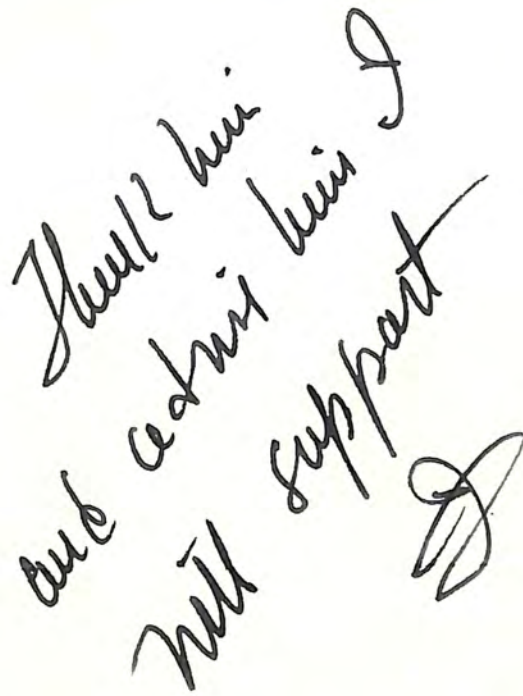 Thank him
and advise him I
will support